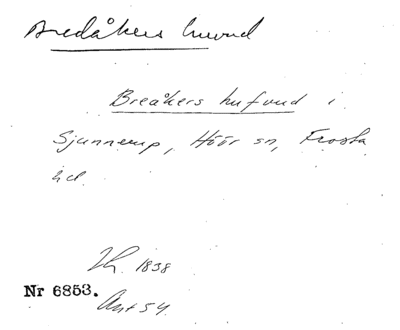 Bredåkers huvud
Breåkers hufvud i
Sjunnerup, Höör sn, Frosta
hd.
Lh. 1838
Nr 6853.
Ant 54.